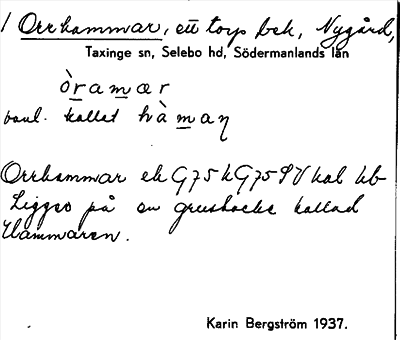 1 Orrhammar, ett torp bek, Nygård,
Taxinge sn, Selebo hd, Södermanlands län
òramær
vanl. kallat hàmaŋ
Orrhammar ek G75 k G75 SV kal kb
Ligger på en grusbacke kallad
Hammaren.
Karin Bergström 1937.